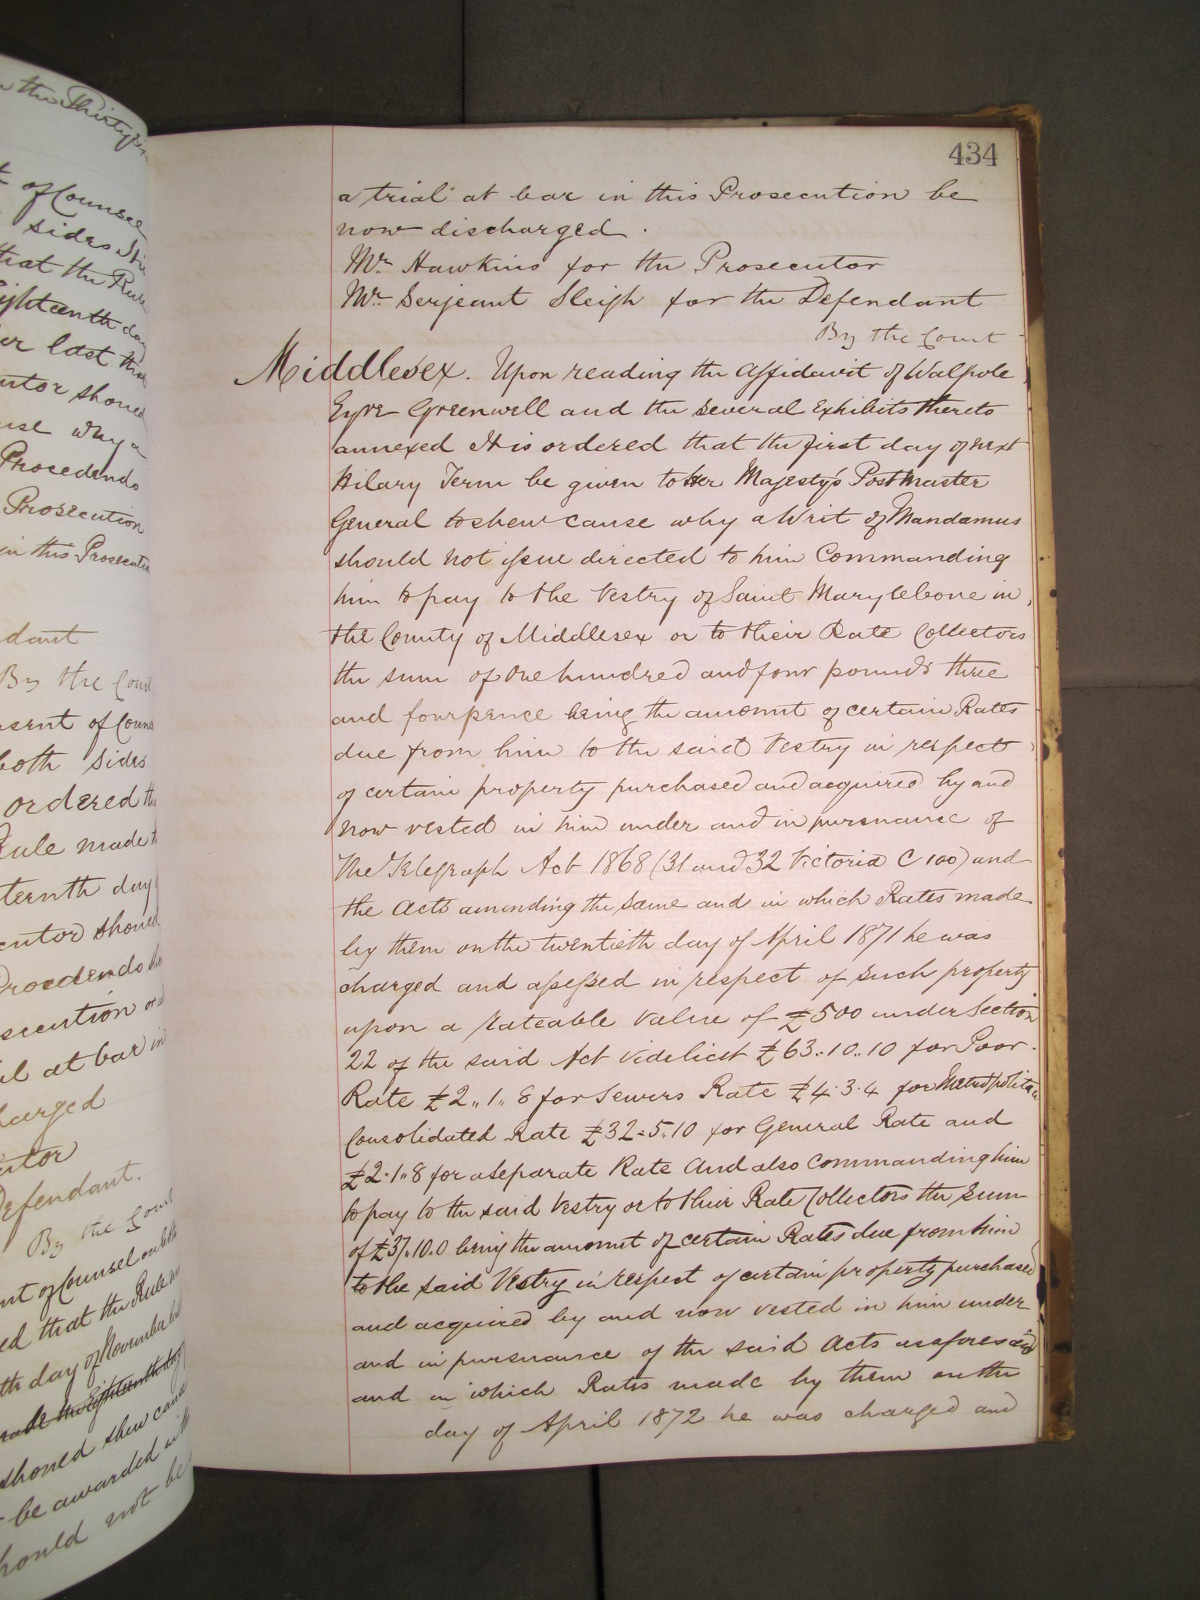 434
a trial at bar in this Prosecution be
now discharged.
Mr Hawkins for the Prosecutor
Mr Serjeant Sleigh for the Defendant
By the Court
Middlesex. Upon reading the Affidavit of Walpole
Eyre Greenwell and the several Exhibits thereto
annexed It is ordered that the first day of next
Hilary Term be given to Her Majesty's Postmaster
General to shew cause why a Writ of Mandamus
should not issue directed to him Commanding
him to pay to the Vestry of Saint Marylebone in
the County of Middlesex or to their Rate Collectors
the sum of One hundred and four pounds three
and fourpence being the amount of certain Rates
due from him to the said Vestry in respect
of certain property purchased and acquired by and
now vested in him under and in pursuance of
The Telegraph Act 1868 (31 and 32 Victoria C 100) and
the Acts amending the same and in which Rates made
by them on the twentieth day of April 1871 he was
charged and assessed in respect of such property
upon a rateable value of £500 under Section
22 of the said Act videlicet £63..10..10 for Poor
Rate £2..1..8 for Sewers Rate £4.3.4 for Metropolitan
Consolidated Rate £32.5.10 for General Rate and
£2.1.8 for a separate Rate And also Commanding him
to pay to the said Vestry or to their Rate Collectors the sum
of £37.10.0 being the amount of certain Rates due from him
to the said Vestry in respect of certain property purchased
and acquired by and now vested in him under
and in pursuance of the said Acts as aforesaid
and in which Rates made by them on the
day of April 1872 he was charged and
of Counsel
sides
that the Rule
Eighteenth day
last that
should
why a
Procedendo
Prosecution
in this Prosecution
By the Court
of Counsel
both sides
ordered
Rule made
day
should
Procedendo
at bar in
Defendant.
By the Court
of Counsel
that the Rule
day of November
should shew cause
be awarded
should not be